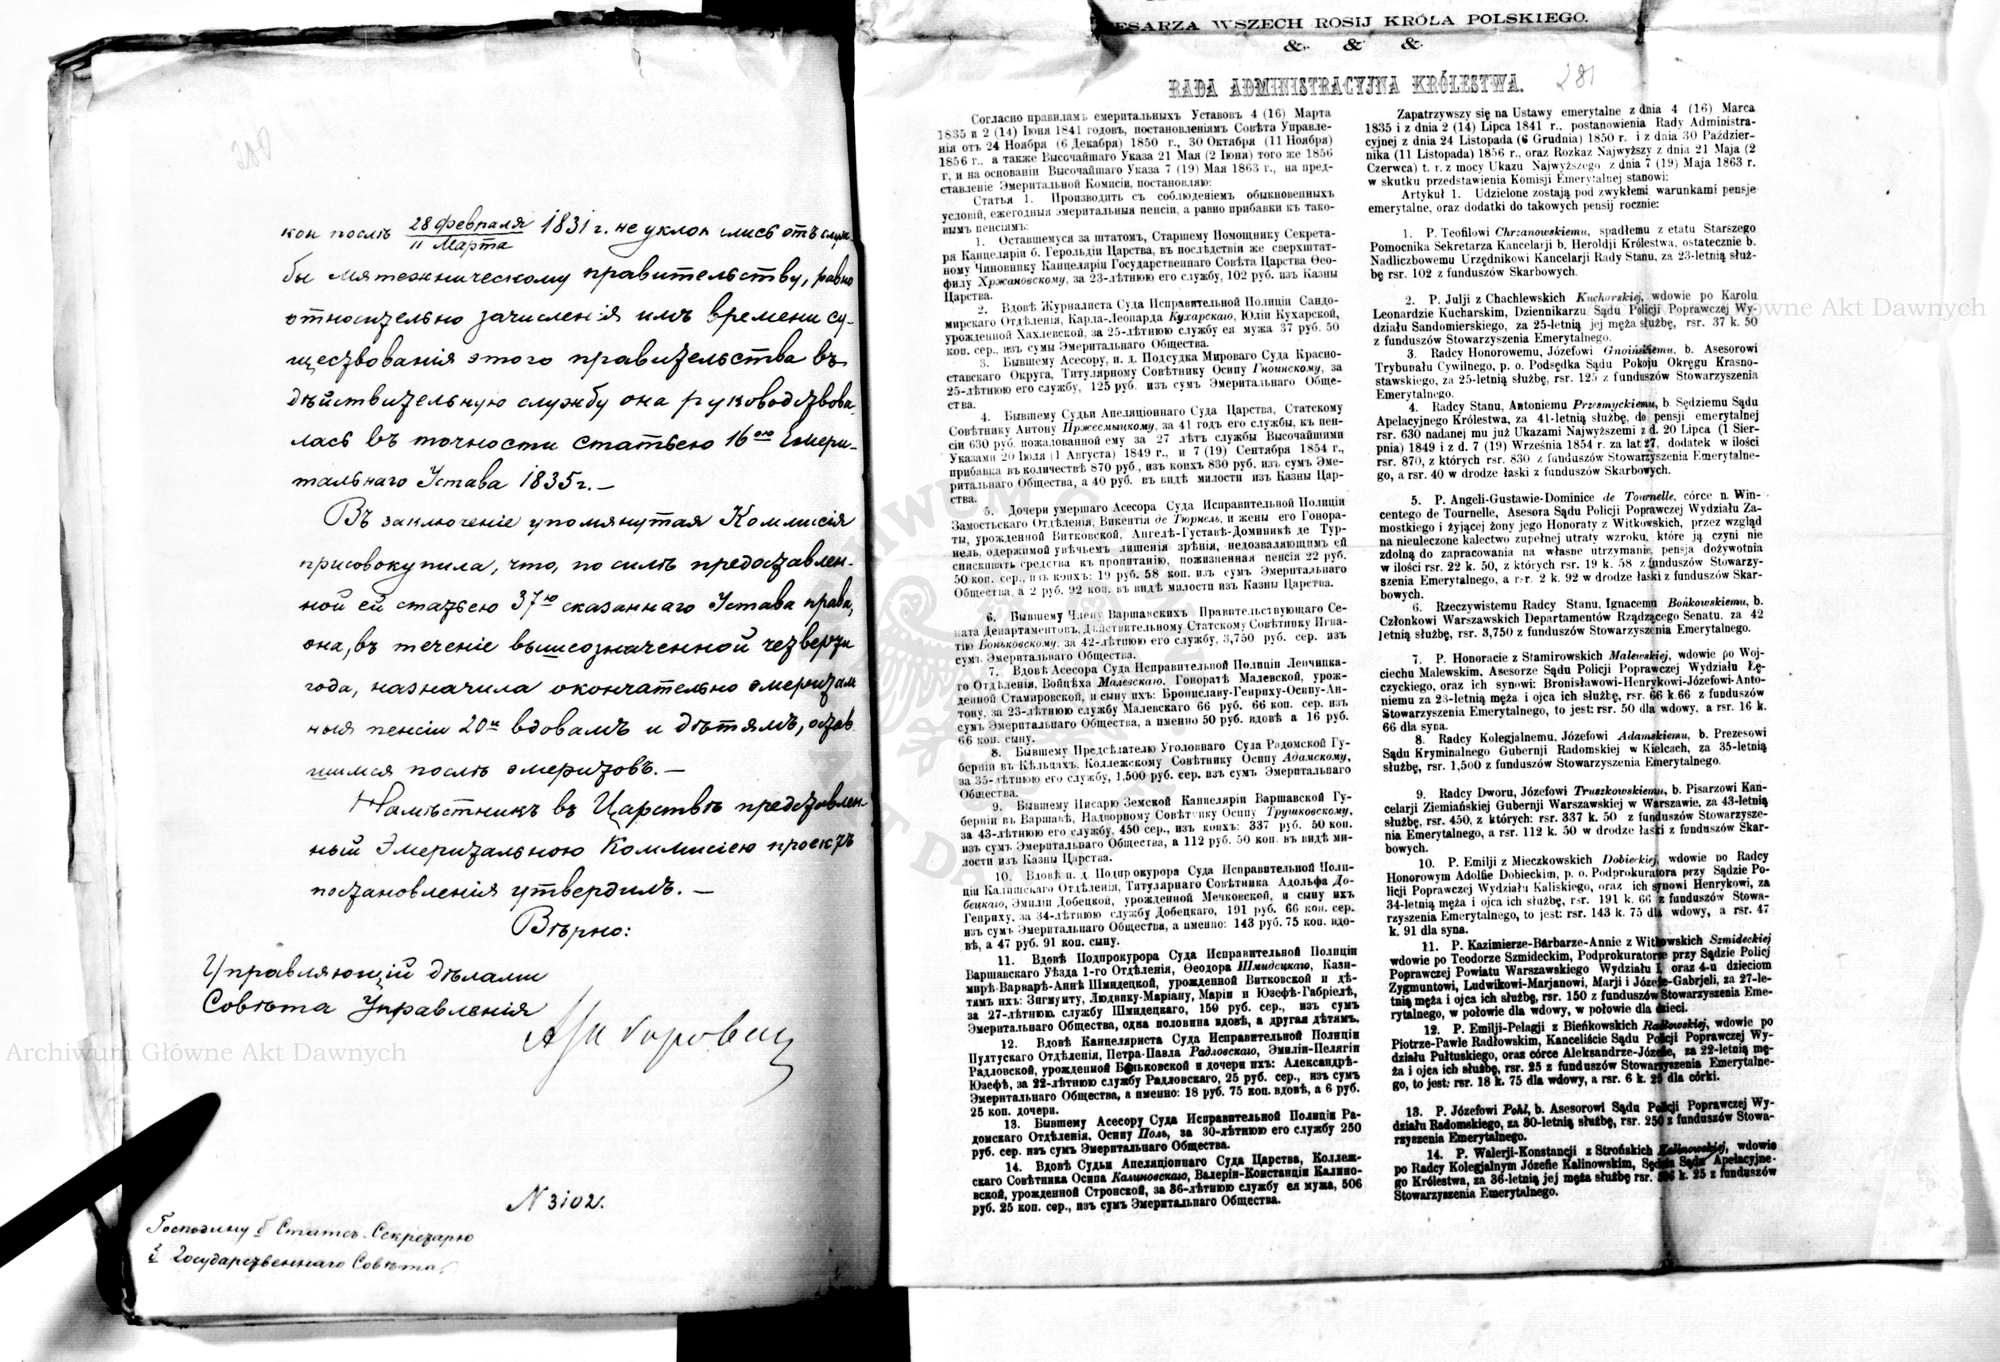 280
кои послѣ 28 Февраля / 11 Марта 1831 г. не уклонились отъ служ-
бы мятежническому правительству, равно
относительно зачисленія имъ времени су-
ществованія этого правительства въ
дѣйствительную службу она руководствова-
лась въ точности статьею 16ою Эмери-
тальнаго Устава 1835 г. —
Въ заключеніе упомянутая Коммисія
присовокупила, что, по силѣ предоставлен-
ной ей статьею 37ю сказаннаго Устава права,
она, въ теченіе вышеозначенной четверти
года, назначила окончательно эмериталь
ныя пенсіи 20и вдовамъ и дѣтямъ, остав
шимся послѣ эмеритовъ. —
Намѣстникъ въ Царствѣ представлен-
ный Эмеритальною Коммисіею проектъ
постановленія утвердилъ. —
Вѣрно:
Управляющій дѣлами
Совѣта Управленія
N 3102.
Господину б Статсъ-Секретарю
Государственнаго Совѣта.
ESARZA WSZECH ROSIJ KRÓLA POLSKIEGO.
&. & &
RADA ADMINISTRACYJNA KRÓLESTWA.
281
Согласно правиламъ емеритальныхъ Уставовъ 4 (16) Марта
1835 и 2 (14) Іюня 1841 годовъ, постановленіямъ Совѣта Управле-
нія отъ 24 Ноября (6 Декабря) 1850 г., 30 Октября (11 Ноября)
1856 г., а также Высочайшаго Указа 21 Мая (2 Іюня) того же 1856
г. и на основаніи Высочайшаго Указа 7 (19) Мая 1863 г., на пред-
ставленіе Эмеритальной Комисіи, постановляю:
Статья 1. Производить съ соблюденіемъ обыкновенныхъ
условій, ежегодныя эмеритальныя пенсіи, а равно прибавки къ тако-
вымъ пенсіямъ:
1. Оставшемуся за штатомъ, Старшему Помощнику Секрета-
ря Канцеляріи б. Герольдіи Царства, въ послѣдствіи же сверхштат-
ному Чиновнику Канцеляріи Государственнаго Совѣта Царства Ѳео-
филу Хржановскому, за 23-лѣтнюю его службу, 102 руб. изъ Казны
Царства.
2. Вдовѣ Журналиста Суда Исправительной Полиціи Сандо-
мирскаго Отдѣленія, Карла-Леонарда Кухарскаго, Юліи Кухарской,
урожденной Хахлевской, за 25-лѣтнюю службу ея мужа 37 руб. 50
коп. сер., изъ сумы Эмеритальнаго Общества.
3. Бывшему Асесору, и. д. Подсудка Мироваго Суда Красно-
ставскаго Округа, Титулярному Совѣтнику Осипу Гноинскому, за
25-лѣтнюю его службу, 125 руб. изъ сумъ Эмеритальнаго Обще-
ства.
4. Бывшему Судьи Апеляціоннаго Суда Царства, Статскому
Совѣтнику Антону Пржесмыцкому, за 41 годъ его службы, къ пен-
сіи 630 руб. пожалованной ему за 27 лѣтъ службы Высочайшими
Указами 20 Іюля (1 Августа) 1849 г., и 7 (19) Сентября 1854 г.,
прибавка въ количествѣ 870 руб., изъ коихъ 830 руб. изъ сумъ Эме-
ритальнаго Общества, а 40 руб. въ видѣ милости изъ Казны Цар-
ства.
5. Дочери умершаго Асесора Суда Исправительной Полиціи
Замостьскаго Отдѣленія, Викентія де Тюрнель, и жены его Гонора-
ты, урожденной Витковской, Ангелѣ-Густавѣ-Доминикѣ де Тур-
нель, одержимой увѣчьемъ лишенія зрѣнія, недозваляющимъ ей
снискивать средства къ пропитанію, пожизненная пенсія 22 руб.
50 коп. сер., изъ коихъ: 19 руб. 58 коп. изъ сумъ Эмеритальнаго
Общества, а 2 руб. 92 коп. въ видѣ милости изъ Казны Царства.
6. Бывшему Члену Варшавскихъ Правительствующаго Се-
ната Департаментовъ, Дѣйствительному Статскому Совѣтнику Игна-
тію Боньковскому, за 42-лѣтнюю его службу, 3,750 руб. сер. изъ
сумъ Эмеритальнаго Общества.
7. Вдовѣ Асесора Суда Исправительной Полиціи Ленчицка-
го Отдѣленія, Войцѣха Малевскаго, Гоноратѣ Малевской, урож-
денной Стамировской, и сыну ихъ: Брониславу-Генриху-Осипу-Ан-
тону, за 23-лѣтнюю службу Малевскаго 66 руб. 66 коп. сер. изъ
сумъ Эмеритальнаго Общества, а именно 50 руб. вдовѣ а 16 руб.
66 коп. сыну.
8. Бывшему Предсѣдателю Уголовнаго Суда Радомской Гу-
берніи въ Кѣльцахъ, Коллежскому Совѣтнику Осипу Адамскому,
за 35-лѣтнюю его службу, 1,500 руб. сер. изъ сумъ Эмеритальнаго
Общества.
9. Бывшему Писарю Земской Канцеляріи Варшавской Гу-
берніи въ Варшавѣ, Надворному Совѣтнику Осипу Трушковскому,
за 43-лѣтнюю его службу, 450 сер., изъ коихъ: 337 руб. 50 коп.
изъ сумъ Эмеритальнаго Общества, а 112 руб. 50 коп. въ видѣ ми-
лости изъ Казны Царства.
10. Вдовѣ и. д. Подпрокурора Суда Исправительной Поли-
ціи Калишскаго Отдѣленія, Титулярнаго Совѣтника Адольфа До-
бецкаго, Эмиліи Добецкой, урожденной Мечковской, и сыну ихъ
Генриху, за 34-лѣтнюю службу Добецкаго, 191 руб. 66 коп. сер.
изъ сумъ Эмеритальнаго Общества, а именно: 143 руб. 75 коп. вдо-
вѣ, а 47 руб. 91 коп. сыну.
11. Вдовѣ Подпрокурора Суда Исправительной Полиціи
Варшавскаго Уѣзда 1-го Отдѣленія, Ѳеодора Шмидецкаго, Кази-
мирѣ-Варварѣ-Аннѣ Шмидецкой, урожденной Витковской и дѣ-
тямъ ихъ: Зигмунту, Людвику-Маріану, Маріи и Юзефѣ-Габріелѣ,
за 27-лѣтнюю службу Шмидецкаго, 150 руб. сер., изъ сумъ
Эмеритальнаго Общества, одна половина вдовѣ, а другая дѣтямъ.
12. Вдовѣ Канцеляриста Суда Исправительной Полиціи
Пултускаго Отдѣленія, Петра-Павла Радловскаго, Эмиліи-Пелягіи
Радловской, урожденной Беньковской и дочери ихъ: Александрѣ-
Юзефѣ, за 22-лѣтнюю службу Радловскаго, 25 руб. сер., изъ сумъ
Эмеритальнаго Общества, а именно: 18 руб. 75 коп. вдовѣ, а 6 руб.
25 коп. дочери.
13. Бывшему Асесору Суда Исправительной Полиціи Ра-
домскаго Отдѣленія, Осипу Поль, за 30-лѣтнюю его службу 250
руб. сер. изъ сумъ Эмеритальнаго Общества.
14. Вдовѣ Судьи Апеляціоннаго Суда Царства, Коллеж-
скаго Совѣтника Осипа Калиновскаго, Валеріи-Констанціи Калино-
вской, урожденной Стронской, за 36-лѣтнюю службу ея мужа, 506
руб. 25 коп. сер., изъ сумъ Эмеритальнаго Общества.
Zapatrzywszy się na Ustawy emerytalne z dnia 4 (16) Marca
1835 i z dnia 2 (14) Lipca 1841 r., postanowienia Rady Administra-
cyjnej z dnia 24 Listopada (6 Grudnia) 1850 r. i z dnia 30 Paździer-
nika (11 Listopada) 1856 r., oraz Rozkaz Najwyższy z dnia 21 Maja (2
Czerwca) t. r. z mocy Ukazu Najwyższego z dnia 7 (19) Maja 1863 r.
w skutku przedstawienia Komisji Emerytalnej stanowi:
Artykuł 1. Udzielone zostają pod zwykłemi warunkami pensje
emerytalne, oraz dodatki do takowych pensij rocznie:
1. P. Teofilowi Chrzanowskiemu, spadłemu z etatu Starszego
Pomocnika Sekretarza Kancelarji b. Heroldji Królestwa, ostatecznie b.
Nadliczbowemu Urzędnikowi Kancelarji Rady Stanu, za 23-letnią służ-
bę rsr. 102 z funduszów Skarbowych.
2. P. Julji z Chachlewskich Kucharskiej, wdowie po Karolu
Leonardzie Kucharskim, Dziennikarzu Sądu Policji Poprawczej Wy-
działu Sandomierskiego, za 25-letnią jej męża służbę, rsr. 37 k. 50
z funduszów Stowarzyszenia Emerytalnego.
3. Radcy Honorowemu, Józefowi Gnoińskiemu, b. Asesorowi
Trybunału Cywilnego, p. o. Podsędka Sądu Pokoju Okręgu Krasno-
stawskiego, za 25-letnią służbę, rsr. 125 z funduszów Stowarzyszenia
Emerytalnego.
4. Radcy Stanu, Antoniemu Przesmyckiemu, b. Sędziemu Sądu
Apelacyjnego Królestwa, za 41-letnią służbę, do pensji emerytalnej
rsr. 630 nadanej mu już Ukazami Najwyższemi z d. 20 Lipca (1 Sier-
pnia) 1849 i z d. 7 (19) Września 1854 r. za lat 27, dodatek w ilości
rsr. 870, z których rsr. 830 z funduszów Stowarzyszenia Emerytalne-
go, a rsr. 40 w drodze łaski z funduszów Skarbowych.
5. P. Angeli-Gustawie-Dominice de Tournelle, córce n. Win-
centego de Tournelle, Asesora Sądu Policji Poprawczej Wydziału Za-
mostkiego i żyjącej żony jego Honoraty z Witkowskich, przez wzgląd
na nieuleczone kalectwo zupełnej utraty wzroku, które ją czyni nie
zdolną do zapracowania na własne utrzymanie, pensja dożywotnia
w ilości rsr. 22 k. 50, z których rsr. 19 k. 58 z funduszów Stowarzy-
szenia Emerytalnego, a rsr. 2 k. 92 w drodze łaski z funduszów Skar-
bowych.
6. Rzeczywistemu Radcy Stanu, Ignacemu Bońkowskiemu, b.
Członkowi Warszawskich Departamentów Rządzącego Senatu, za 42
letnią służbę, rsr. 3,750 z funduszów Stowarzyszenia Emerytalnego.
7. P. Honoracie z Stamirowskich Malewskiej, wdowie po Woj-
ciechu Malewskim, Asesorze Sądu Policji Poprawczej Wydziału Łę-
czyckiego, oraz ich synowi: Bronisławowi-Henrykowi-Józefowi-Anto-
niemu za 23-letnią męża i ojca ich służbę, rsr. 66 k.66 z funduszów
Stowarzyszenia Emerytalnego, to jest: rsr. 50 dla wdowy, a rsr. 16 k.
66 dla syna.
8. Radcy Kolegjalnemu, Józefowi Adamskiemu, b. Prezesowi
Sądu Kryminalnego Gubernji Radomskiej w Kielcach, za 35-letnią
służbę, rsr. 1,500 z funduszów Stowarzyszenia Emerytalnego.
9. Radcy Dworu, Józefowi Truszkowskiemu, b. Pisarzowi Kan-
celarji Ziemiańskiej Gubernji Warszawskiej w Warszawie, za 43-letnią
służbę, rsr. 450, z których: rsr. 337 k. 50 z funduszów Stowarzysze-
nia Emerytalnego, a rsr. 112 k. 50 w drodze łaski z funduszów Skar-
bowych.
10. P. Emilji z Mieczkowskich Dobieckiej, wdowie po Radcy
Honorowym Adolfie Dobieckim, p. o. Podprokuratora przy Sądzie Po-
licji Poprawczej Wydziału Kaliskiego, oraz ich synowi Henrykowi, za
34-letnią męża i ojca ich służbę, rsr. 191 k. 66 z funduszów Stowa-
rzyszenia Emerytalnego, to jest: rsr. 143 k. 75 dla wdowy, a rsr. 47
k. 91 dla syna.
11. P. Kazimierze-Barbarze-Annie z Witkowskich Szmideckiej
wdowie po Teodorze Szmideckim, Podprokuratorze przy Sądzie Policj
Poprawczej Powiatu Warszawskiego Wydziału I, oraz 4-u dzieciom
Zygmuntowi, Ludwikowi-Marjanowi, Marji i Józefie-Gabrjeli, za 27-le-
tnią męża i ojca ich służbę, rsr. 150 z funduszów Stowarzyszenia Eme-
rytalnego, w połowie dla wdowy, w połowie dla dzieci.
12. P. Emilji-Pelagji z Bieńkowskich Radłowskiej, wdowie po
Piotrze-Pawle Radłowskim, Kanceliście Sądu Policji Poprawczej Wy-
działu Pułtuskiego, oraz córce Aleksandrze-Józefie, za 22-letnią mę-
ża i ojca ich służbę, rsr. 25 z funduszów Stowarzyszenia Emerytalne-
go, to jest: rsr. 18 k. 75 dla wdowy, a rsr. 6 k. 25 dla córki.
13. P. Józefowi Pohl, b. Asesorowi Sądu Policji Poprawczej Wy-
działu Radomskiego, za 30-letnią służbę, rsr. 250 z funduszów Stowa-
rzyszenia Emerytalnego.
14. P. Walerji-Konstancji z Strońskich Kalinowskiej, wdowie
po Radcy Kolegjalnym Józefie Kalinowskim, Sędzia Sądu Apelacyjne-
go Królestwa, za 36-letnią jej męża służbę rsr. 506 k. 25 z funduszów
Stowarzyszenia Emerytalnego.
Archiwum Główne Akt Dawnych
Główne Akt Dawnych